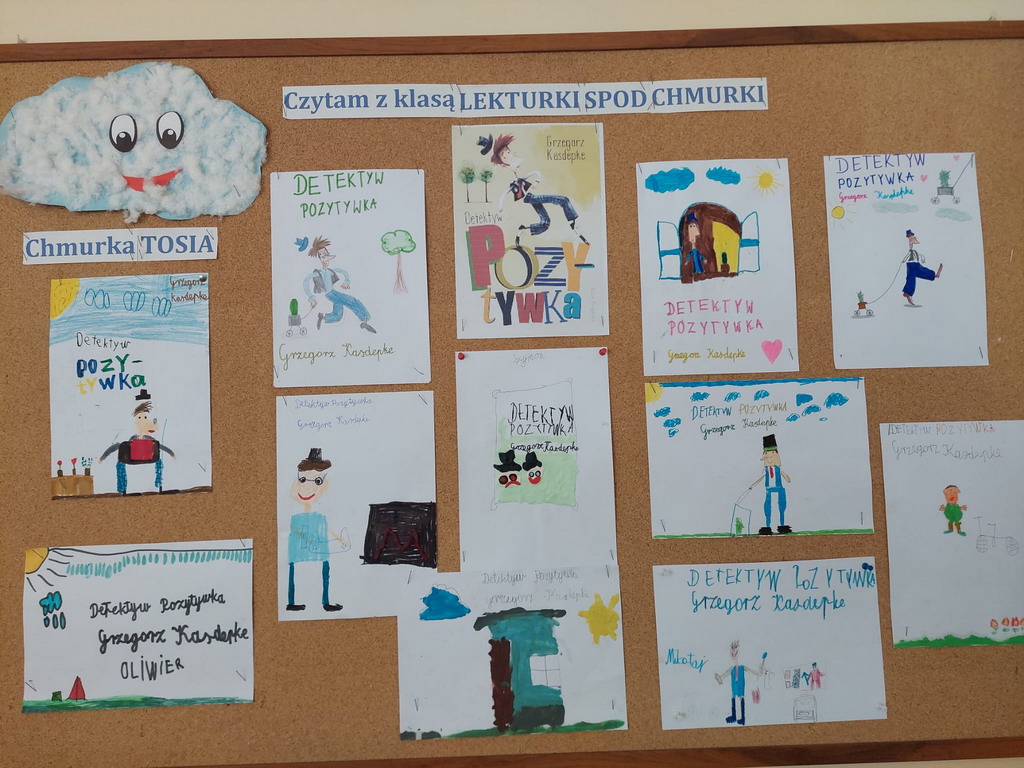 Czytam z klasą LEKTURKI SPOD CHMURKI
Chmurka TOSIA
Grzegorz
Kasdepke
Detektyw
POZY-
tywka
DETEKTYW
POZYTYWKA
Grzegorz Kasdepke
Grzegorz
Kasdepke
Detektyw
POZY-
tywka
DETEKTYW
POZYTYWKA
Grzegorz Kasdepke
DETEKTYW
POZYTYWKA
Grzegorz Kasdepke
Detektyw Pozytywka
Grzegorz
Szymon
DETEKTYW
POZYTYWKA
Grzegorz Kasdepke
DETEKTYW POZYTYWKA
Grzegorz Kasdepke
DETEKTYW POZYTYWKA
Grzegorz Kasdepke
Detektyw Pozytywka
Grzegorz Kasdepke
OLIWIER
Detektyw Pozytywka
Grzegorz Kasdepke
DETEKTYW POZYTYWKA
Grzegorz Kasdepke
Mikołaj